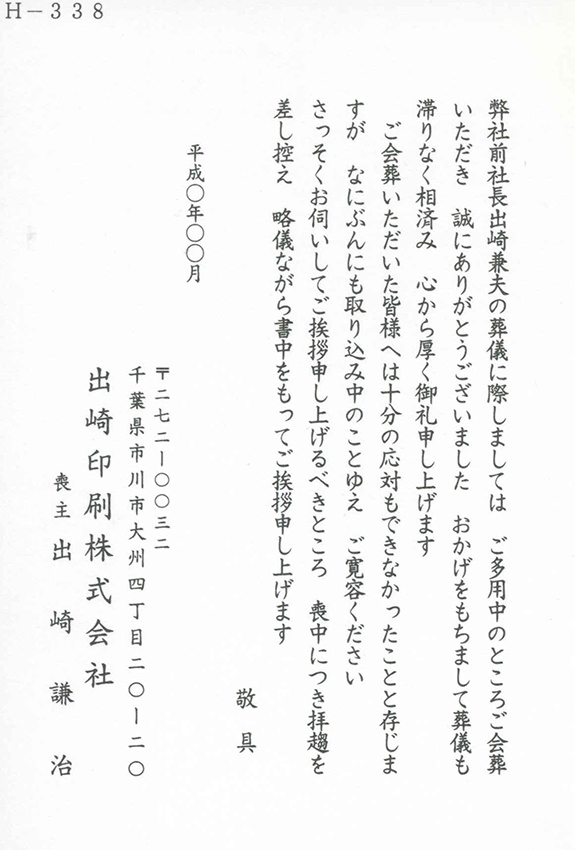 H－３３８
弊社前社長出崎兼夫の葬儀に際しましては　ご多用中のところご会葬
いただき　誠にありがとうございました　おかげをもちまして葬儀も
滞りなく相済み　心から厚く御礼申し上げます
　ご会葬いただいた皆様へは十分の応対もできなかったことと存じま
すが　なにぶんにも取り込み中のことゆえ　ご寛容ください
さっそくお伺いしてご挨拶申し上げるべきところ　喪中につき拝趨を
差し控え　略儀ながら書中をもってご挨拶申し上げます
敬具
平成〇年〇〇月
〒二七二ー〇〇三二
千葉県市川市大州四丁目二〇ー二〇
出崎印刷株式会社
喪主 出崎謙治